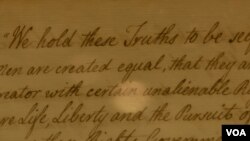 "We hold these Truths to be se
men are created equal, that they a
reator with certain unalienable R
re Life, Liberty and the Pursuit o
VOA